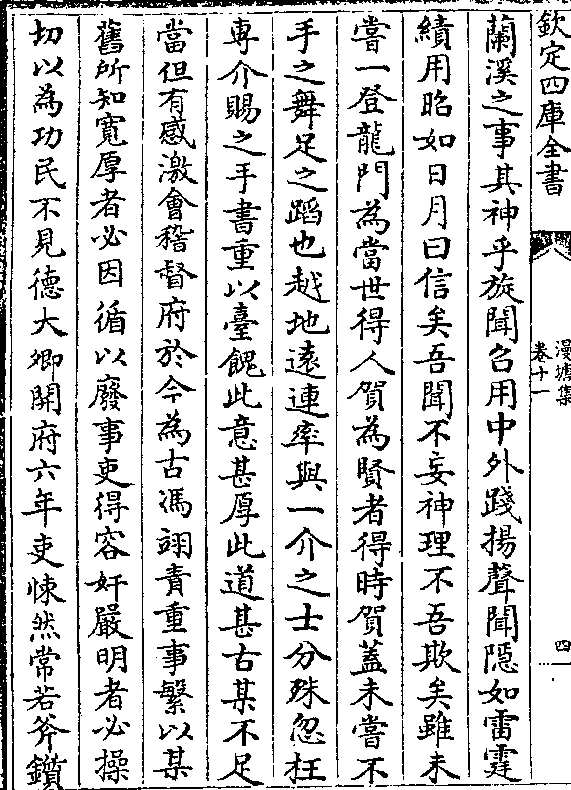 欽定四庫全書
漫塘集
卷十一
四
蘭溪之事其神乎旋聞召用中外踐揚聲聞隠如雷霆
績用昭如日月曰信矣吾聞不妄神理不吾欺矣雖未
嘗一登龍門為當世得人賀為賢者得時賀蓋未嘗不
手之舞足之蹈也越地逺連率與一介之士分殊忽枉
専介賜之手書重以臺餽此意甚厚此道甚古某不足
當但有感激會稽督府於今為古馮翊責重事繁以某
舊所知寛厚者必因循以廢事吏得容奸嚴明者必操
切以為功民不見德大卿開府六年吏悚然常若斧鑕